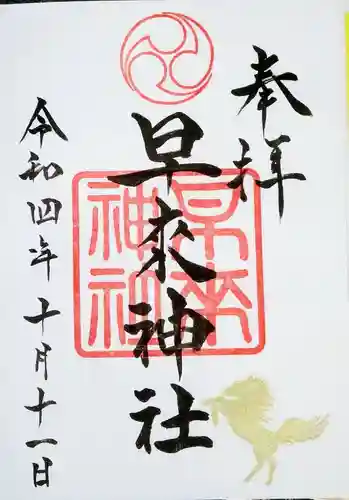 奉拝
早來神社
早来神社
令和四年十月十一日